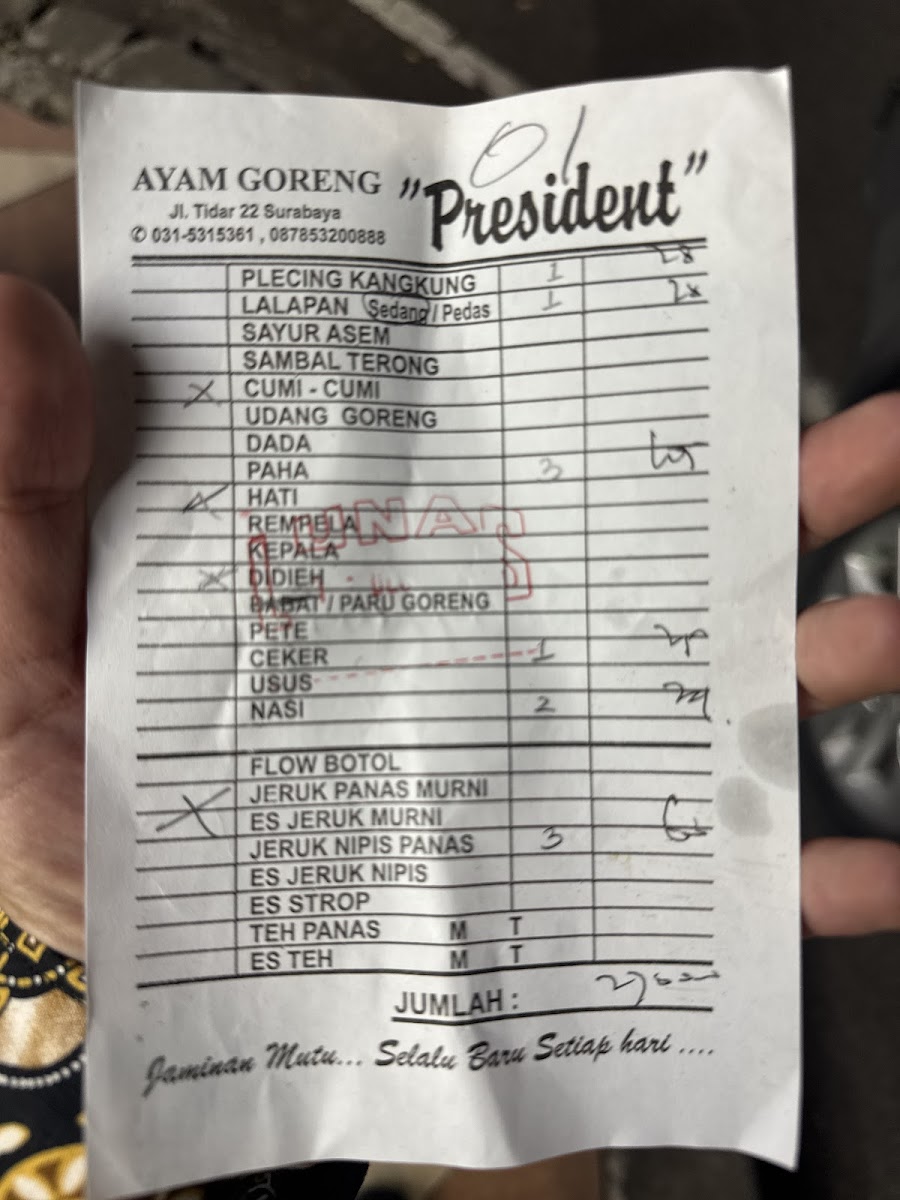 01
AYAM GORENG "President"
Jl. Tidar 22 Surabaya
✆ 031-5315361 , 087853200888
PLECING KANGKUNG 1 28
LALAPAN Sedang / Pedas 1
SAYUR ASEM
SAMBAL TERONG
X CUMI - CUMI
UDANG GORENG
DADA
PAHA 3
HATI
REMPELA
KEPALA
X DIDIEH
BABAT / PARU GORENG
PETE
CEKER 1
USUS
NASI 2
LUNAS
FLOW BOTOL
JERUK PANAS MURNI
X ES JERUK MURNI
JERUK NIPIS PANAS 3
ES JERUK NIPIS
ES STROP
TEH PANAS M T
ES TEH M T
JUMLAH :
Jaminan Mutu... Selalu Baru Setiap hari ....